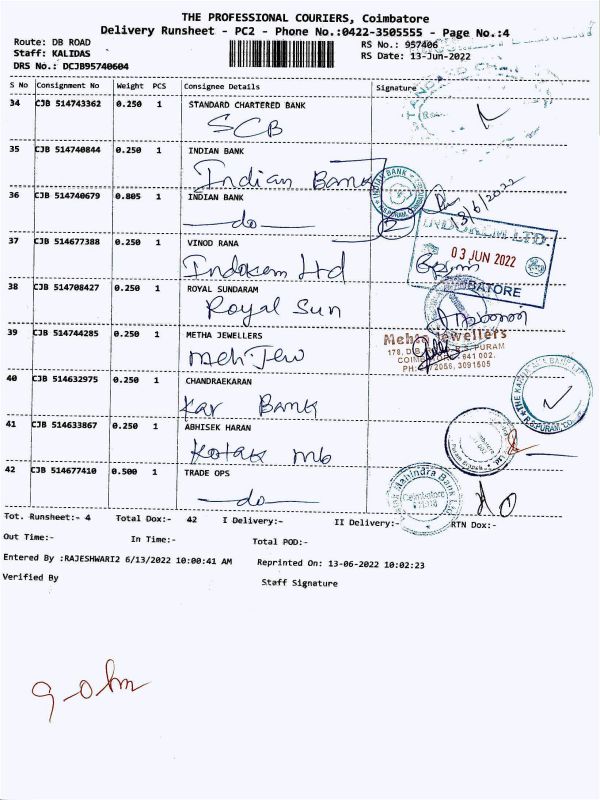 THE PROFESSIONAL COURIERS, Coimbatore
Delivery Runsheet - PC2 - Phone No.:0422-3505555 - Page No.:4
Route: DB ROAD
RS No.: 957406
Staff: KALIDAS
RS Date: 13-Jun-2022
DRS No.: DCJB95740604
S No Consignment No Weight PCS Consignee Details Signature
34 CJB 514743362 0.250 1 STANDARD CHARTERED BANK
SCB
35 CJB 514740844 0.250 1 INDIAN BANK
Indian Bank
36 CJB 514740679 0.805 1 INDIAN BANK
-do-
13/6/2022
INDOKEM LTD.
37 CJB 514677388 0.250 1 VINOD RANA
03 JUN 2022
Indokem Ltd
38 CJB 514708427 0.250 1 ROYAL SUNDARAM
Royal Sun
39 CJB 514744285 0.250 1 METHA JEWELLERS
Meh Jew
Mehta Jewellers
40 CJB 514632975 0.250 1 CHANDRAEKARAN
Kar Bank
41 CJB 514633867 0.250 1 ABHISEK HARAN
Kotak mb
42 CJB 514677410 0.500 1 TRADE OPS
-do-
Coimbatore
Tot. Runsheet:- 4 Total Dox:- 42 I Delivery:- II Delivery:- RTN Dox:-
Out Time:- In Time:- Total POD:-
Entered By :RAJESHWARI2 6/13/2022 10:00:41 AM Reprinted On: 13-06-2022 10:02:23
Verified By Staff Signature